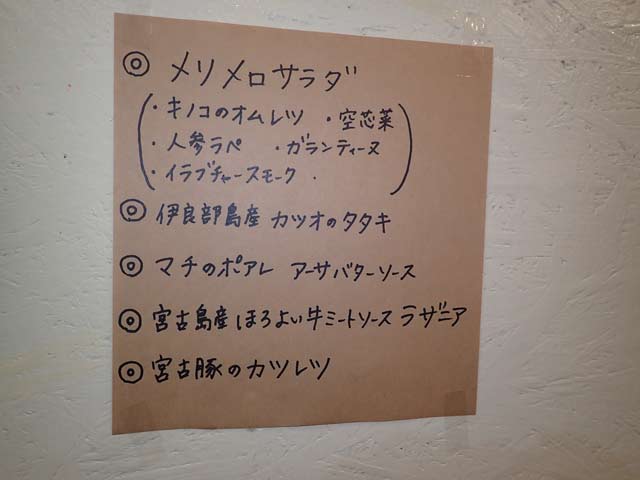 ◎ メリメロサラダ
(・キノコのオムレツ ・空芯菜
・人参ラペ ・ガランティーヌ
・イラブチャースモーク ・)
◎ 伊良部島産 カツオのタタキ
◎ マチのポアレ アーサバターソース
◎ 宮古島産ほろよい牛ミートソース ラザニア
◎ 宮古豚のカツレツ